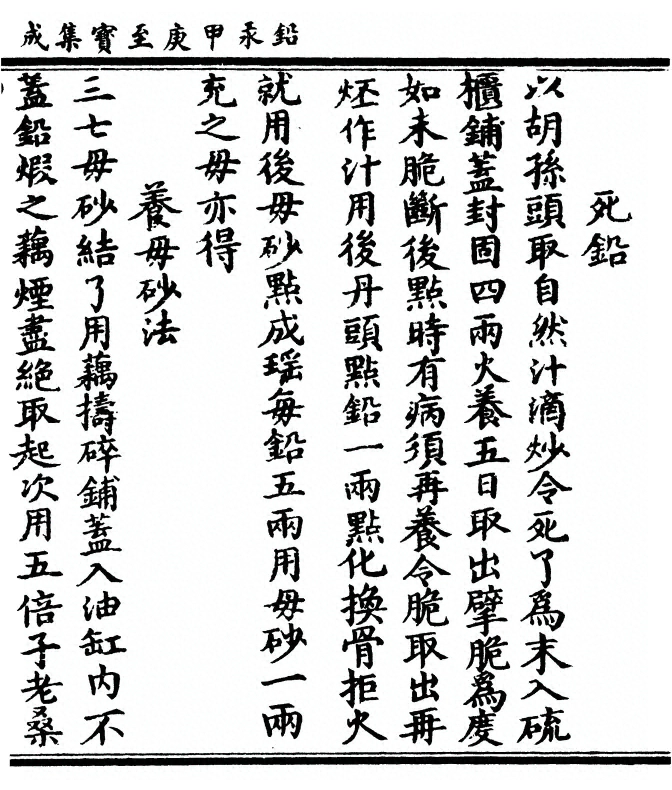 鉛汞甲庚至寶集成
死鉛
以胡孫頭取自然汁滴炒令死了爲末入硫
櫃鋪蓋封固四兩火養五日取出擘脆爲度
如未脆斷後點時有病須再養令脆取出再
烌作汁用後丹頭點鉛一兩點化換骨拒火
就用後母砂點成瑶每鉛五兩用母砂一兩
充之母亦得
養母砂法
三七母砂結了用藕擣碎鋪蓋入油缸内不
蓋鉛煆之藕煙盡絶取起次用五倍子老桑